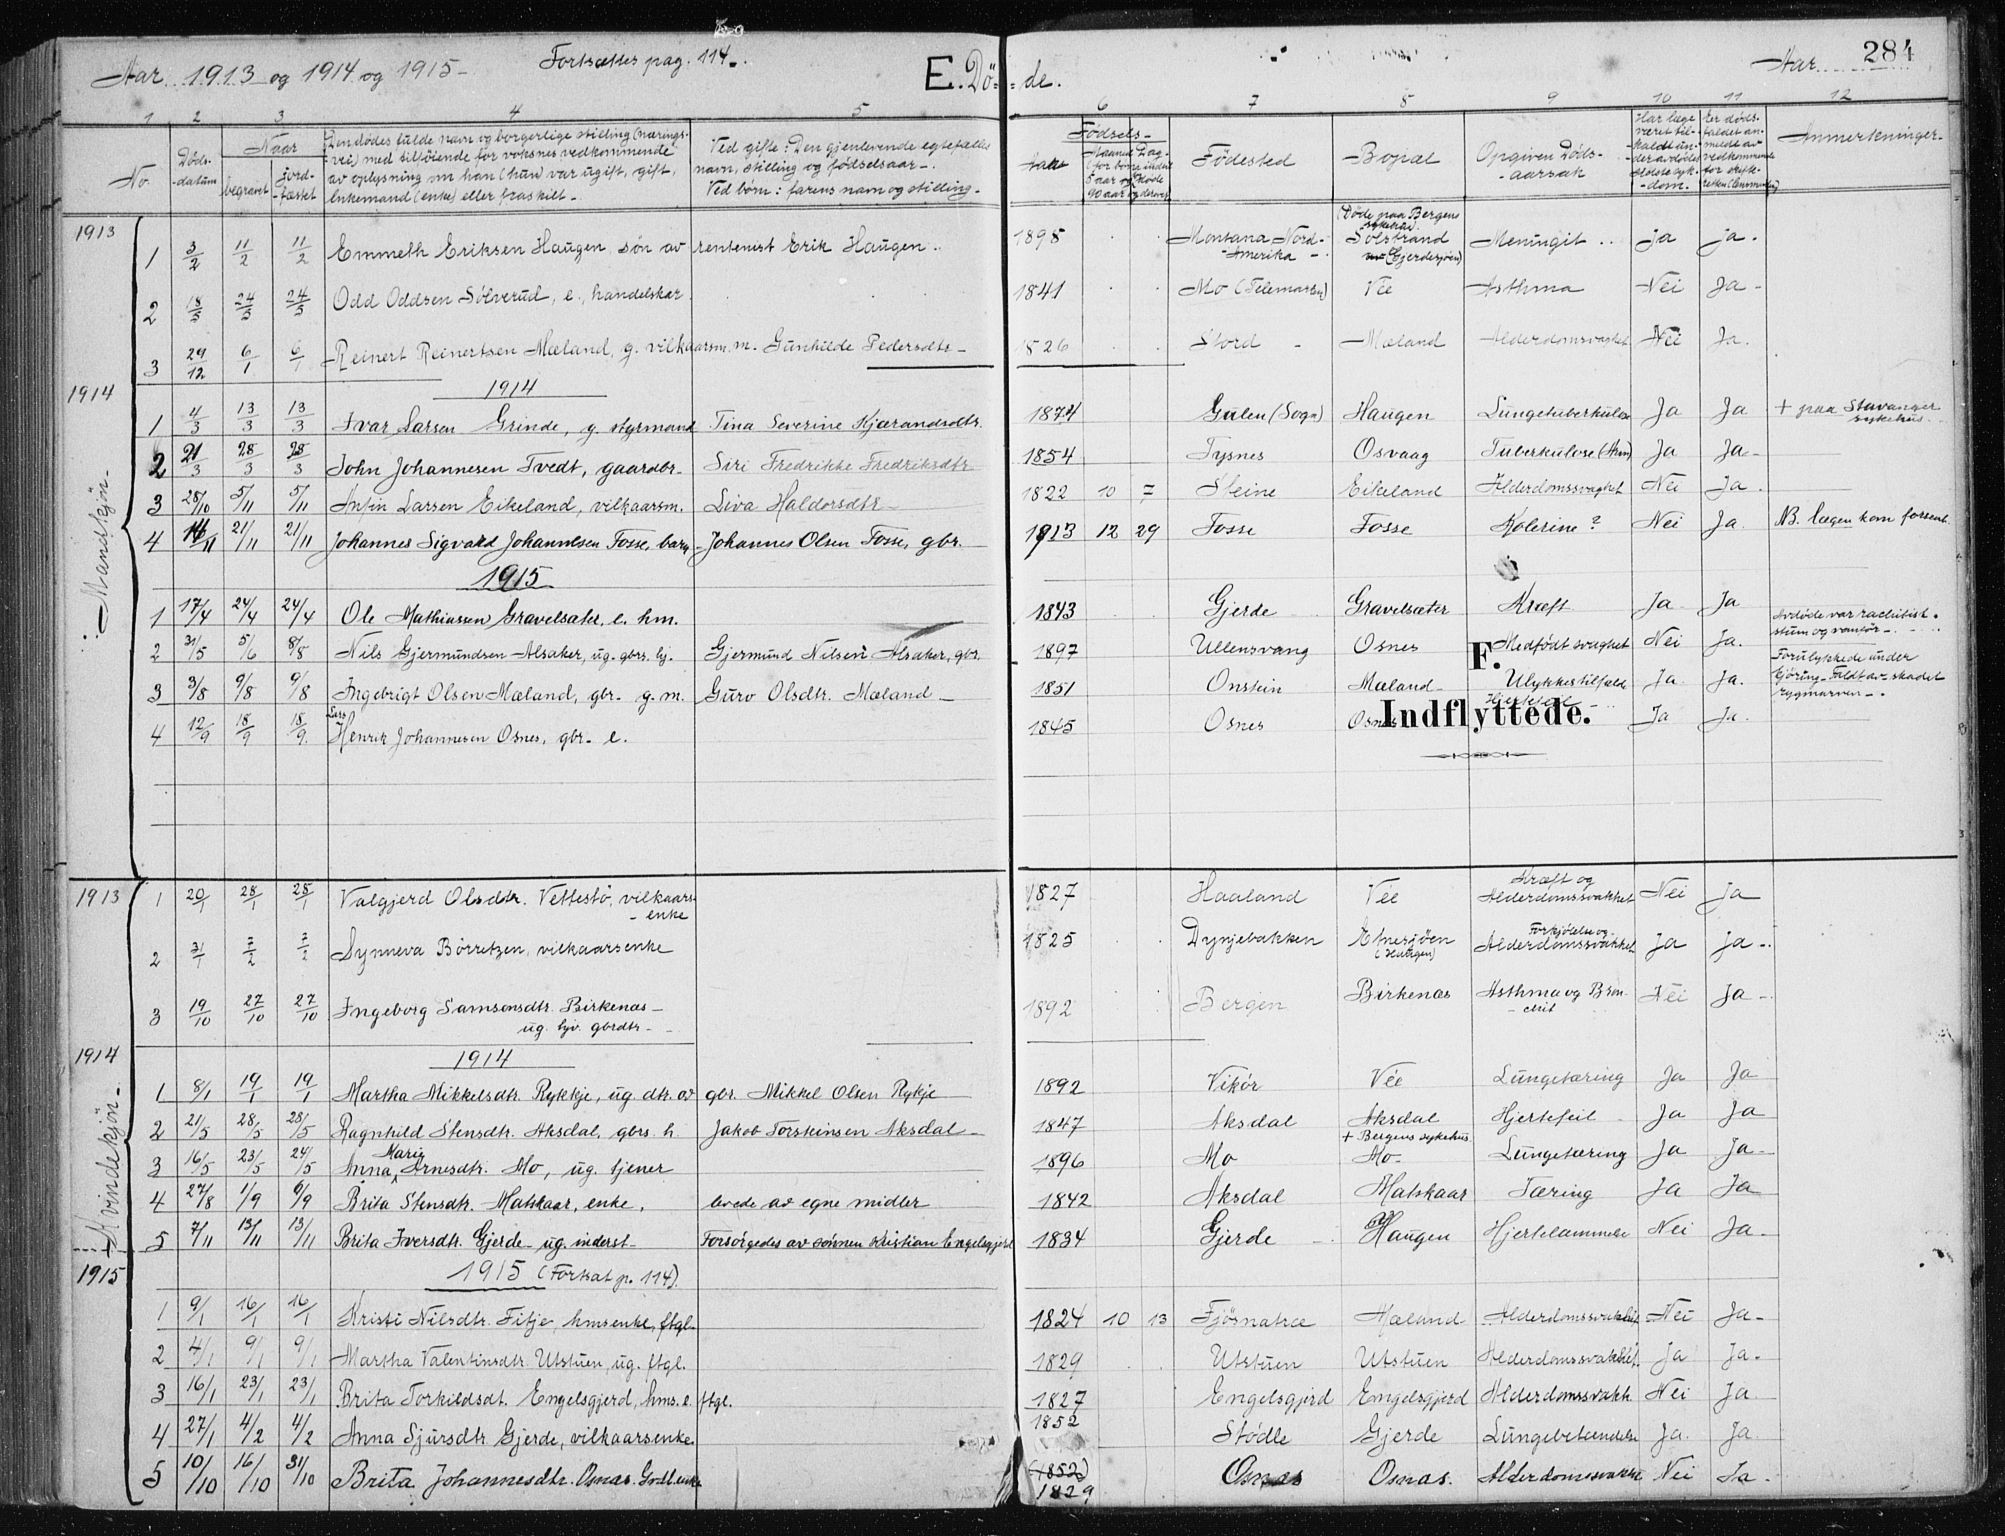 Aar 1913 og 1914 og 1915 - Fortsættes pag. 114. E. Dö- -de. Aar 284
1 2 3 4 5 6 7 8 9 10 11 12
No. Döds-datum Naar begravet Jord-fæstet
Den dödes fulde navn og borgerlige stilling (nærings-
vei) med tilföiende for voksnes vedkommende
av oplysning om han (hun) var ugift, gift,
enkemand (enke) eller fraskilt -
Ved gifte: Den gjenlevende egtefælles
navn, stilling og födselsaar -.
Ved börn: farens navn og stilling -
Födsels- Aar Födested Bopæl Opgiven Döds-aarsak Anmerkninger-
1913
Mandkjön-
1 3/2 11/2 11/2 Emmeth Eriksen Haugen sön av rentenist Erik Haugen. 1895 Montana Nord-Amerika - (Döde paa Bergens sykehus) Solstrand (Gjerdesjöen) Meningit ja ja.
2 18/5 24/5 24/5 Odd Oddsen Sölverud, e. handelskar 1841 Mo (Telemarken) Vee Asthma Nei Ja -
3 29/12 6/1 6/1 Reinert Reinertsen Mæland, g. vilkaarsm. m. Gunhilde Pedersdtr - 1826 Stord - Mæland Alderdomssvaghet Nei Ja.
1914
1914
1 4/3 13/3 13/3 Ivar Larsen Grinde, g. styrmand Tina Severine Kjærandsdtr. 1874 Gulen (Sogn) Haugen Lungetuberkulose Ja Ja + paa Stavanger sykehus
2 21/3 28/3 28/3 John Johannesen Tvedt, gaardbr. Siri Fredrikke Fredriksdtr 1854 Tysnes Osvaag Tuberkulose Ja Ja -
3 28/10 5/11 5/11 Anfin Larsen Eikeland, vilkaarsm. Liva Haldorsdtr - 1822 10 7 Steine Eikeland Alderdomssvaghet Nei Ja.
4 14/11 21/11 21/11 Johannes Sigvald Johannesen Fosse, barn - Johannes Olsen Fosse, gbr. 1913 12 29 Fosse Fosse Kolerine? Nei Ja. NB. lægen kom forsent.
1915
1 17/4 24/4 24/4 Ole Mathiassen Gravelsæter, e. hm. 1843 Gjerde Gravelsæter Kræft Ja Ja
2 31/5 5/6 8/8 Nils Gjermundsen Alsaker, ug. gbrs. hj. Gjermund Nilsen Alsaker, gbr. 1897 Ullensvang Osnes Medfödt svaghet Nei Ja. Avdöde var rachitist. stum og vanför -
3 3/8 9/8 9/8 Ingebrigt Olsen Mæland, gbr. g. m. Guro Olsdtr. Mæland - 1851 Onstein Mæland - Ulykkestilfælde Ja. Ja. Forulykkede under kjöring - Faldt av. skadet rygmarven -
4 12/9 18/9 18/9 Lars Henrik Johannesen Osnes, gbr. e. 1845 Osnes Osnes Hjertefeil Ja Ja.
F.
Indflyttede.
1913
Kvindekjön -
1 20/1 28/1 28/1 Valgjerd Olsdtr. Vettestö, vilkaars-enke 1827 Haaland Vee Kræft og Alderdomssvakhet Nei Ja
2 31/1 7/2 7/2 Synneva Börretzen, vilkaarsenke 1825 Dynjebakken Etnesjöen (Haugen) Forkjölelse og Alderdomssvakhet Ja ja -.
3 19/10 27/10 27/10 Ingeborg Samsonsdtr. Birkenæs - ug. hjv. gbrdtr - 1892 Bergen Birkenæs Asthma og Bronchit Nei Ja -
1914
1914
1 8/1 19/1 19/1 Martha Mikkelsdtr. Rykkje, ug. dtr. av gbr. Mikkel Olsen Rykje 1892 Vikör Vée Lungetæring Ja Ja
2 21/5 28/5 28/5 Ragnhild Stensdtr. Aksdal, gbrs. h. Jakob Torsteinsen Aksdal - 1847 Aksdal Aksdal Hjertefeil Ja Ja
3 16/5 23/5 24/5 Anna Marie Arnesdtr. Mo, ug. tjener 1896 Mo + Bergens sykehus Mo - Lungetæring Ja Ja -
4 27/8 1/9 6/9 Brita Stensdtr. Matskaar, enke, levde av egne midler 1842 Aksdal Matskaar Tæring Ja Ja
5 7/11 13/11 13/11 Brita Iversdtr. Gjerde - ug. inderst - Forsörgedes av sönnen Kristian Engelsgjerd 1834 Gjerde - Haugen Hjertelammelse Nei Ja -
1915
1915 (Fortsat p. 114).
1 9/1 16/1 16/1 Kristi Nilsdtr. Fitje, hmsenke, ftgl - 1824 10 13 Fjösnatræ Mæland Alderdomssvakhet Nei Ja -
2 4/1 9/1 9/1 Martha Valentinsdtr. Utstuen, ug. ftgl. 1829 Utstuen Utstuen Alderdomssvakhet. Ja Ja -
3 16/1 23/1 23/1 Brita Torkildsdt. Engelsgjerd, hms. e. ftgl. 1827 Engelsgjerd Engelsgjerd Alderdomssvakh. Nei Ja
4 27/1 4/2 4/2 Anna Sjursdtr Gjerde, vilkaarsenke. 1852 Stödle Gjerde Lungebetændelse Ja. Ja
5 10/10 16/10 31/10 Brita Johannesdtr. Osnæs. Grdb. enke (1852) 1829 Osnæs Osnæs. Alderdomssvakhet Nei Ja -